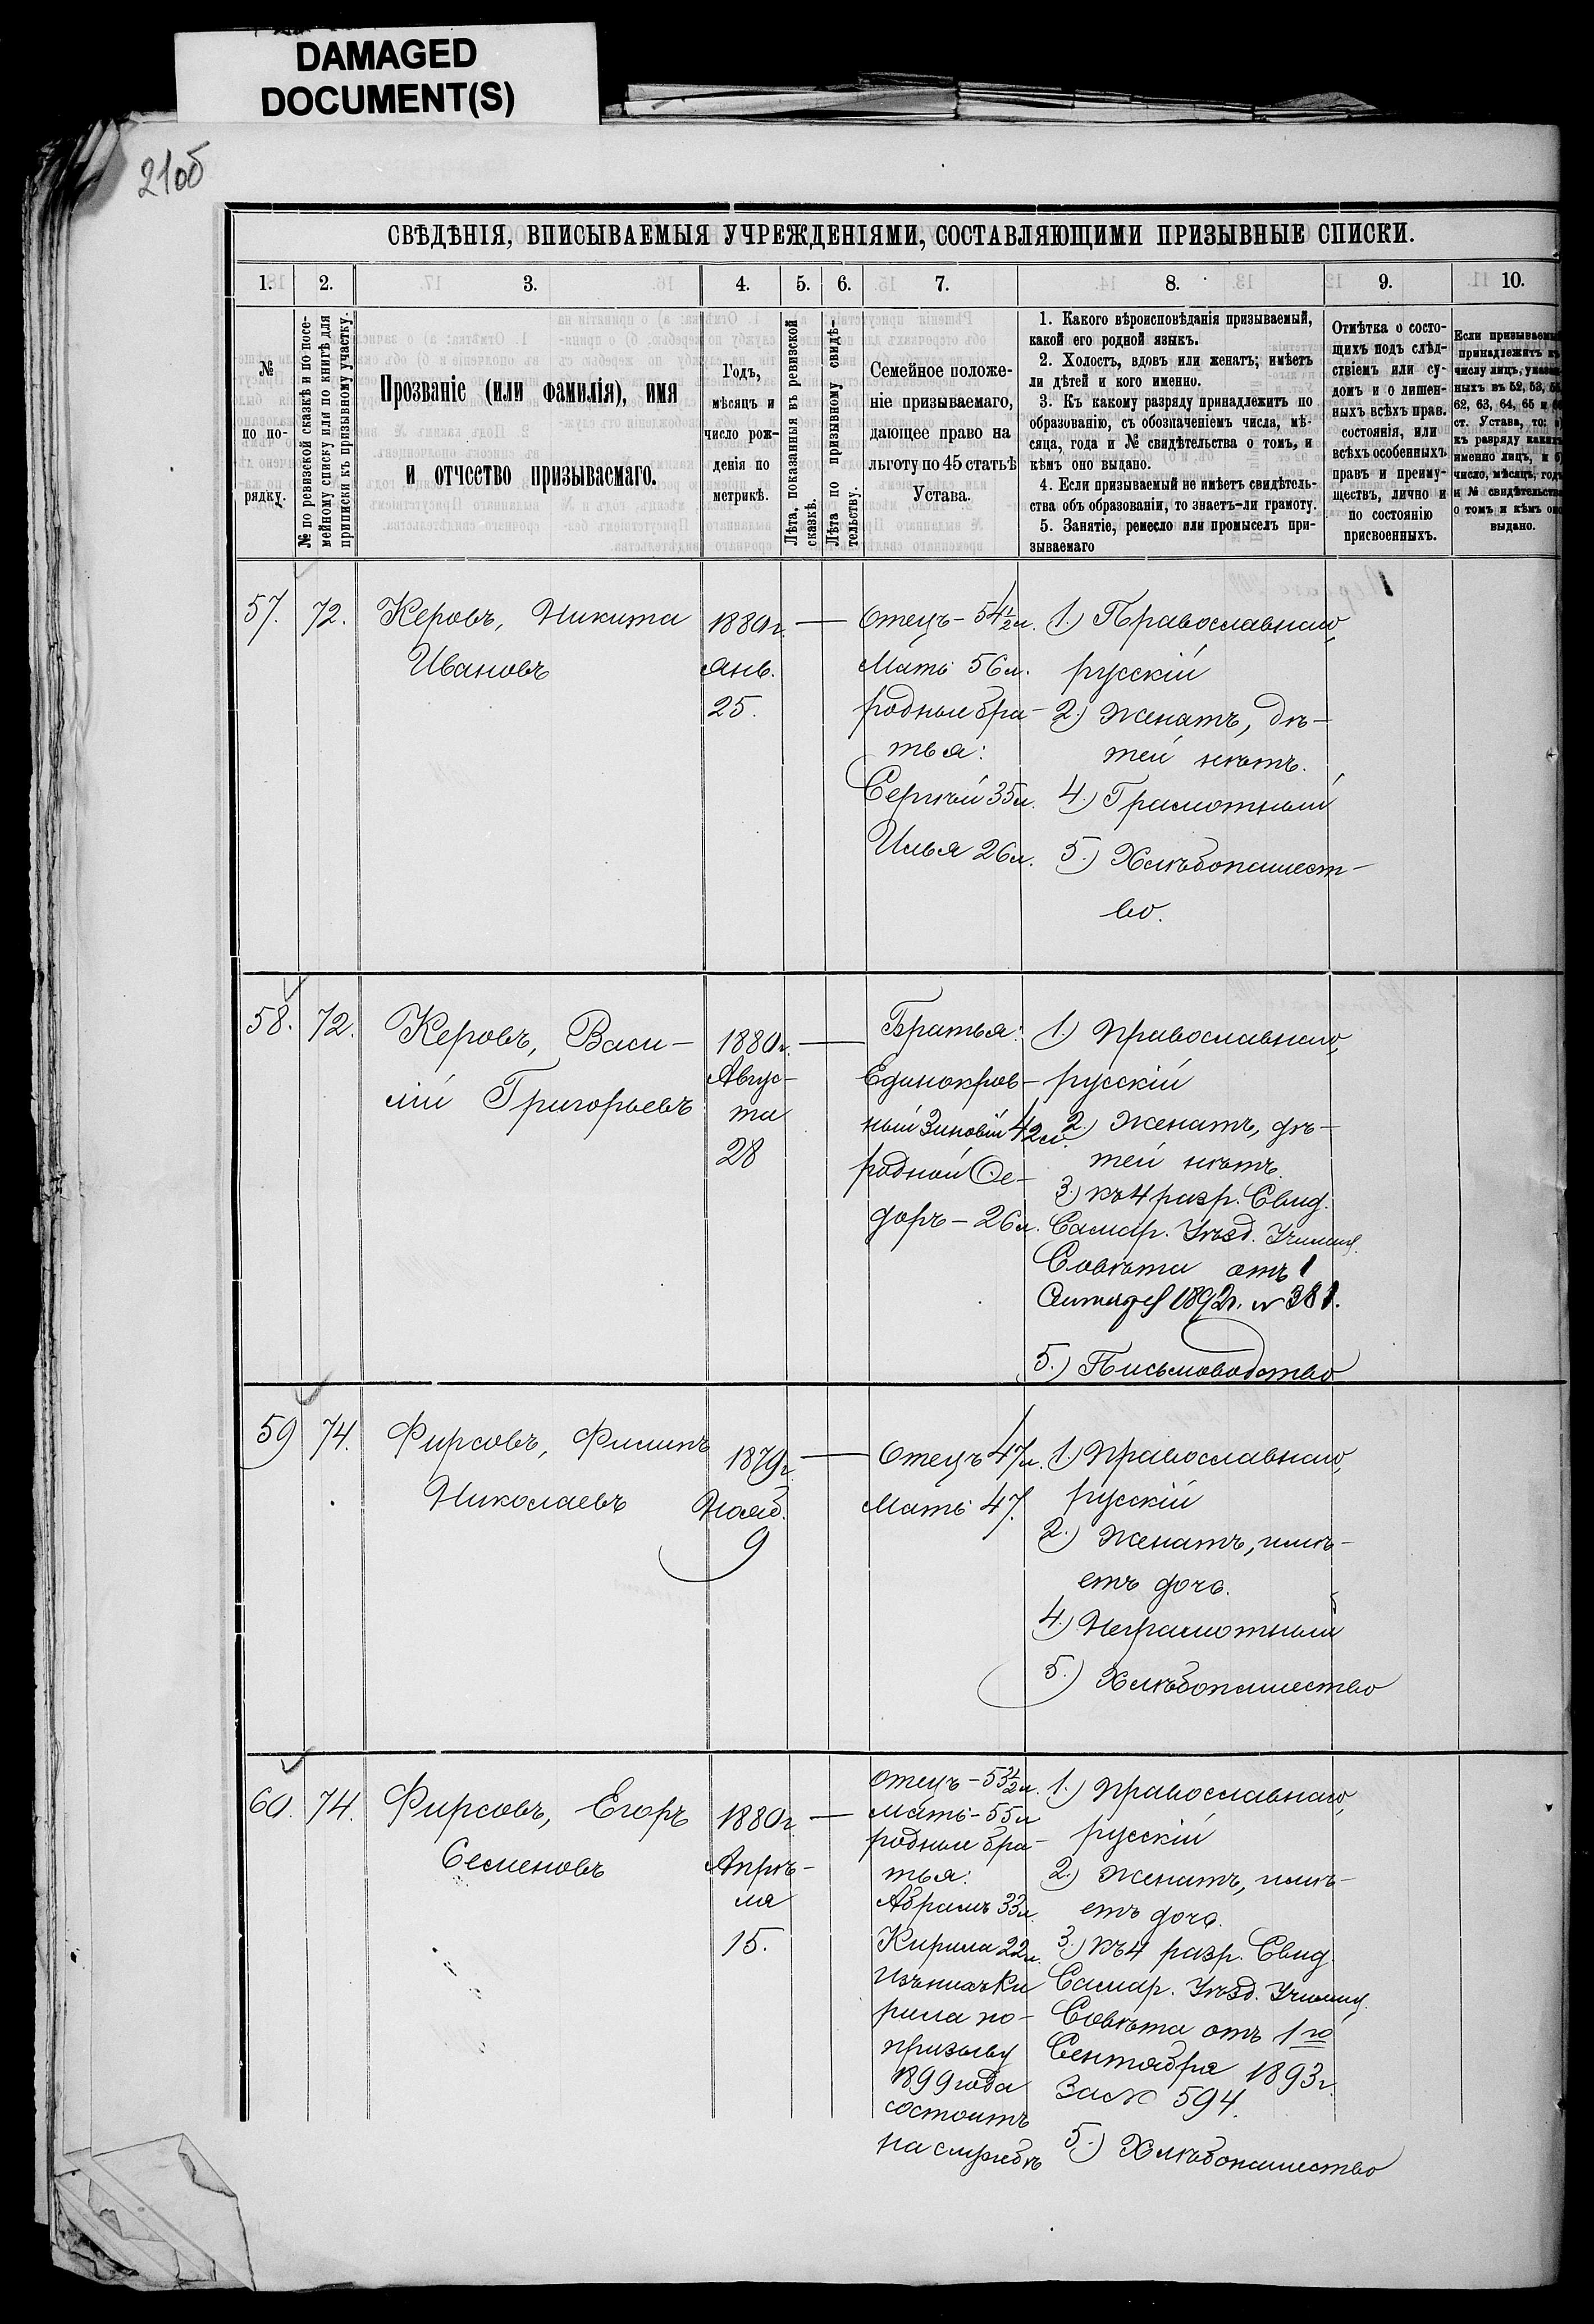 DAMAGED
DOCUMENT(S)
21об
СВѢДѢНІЯ, ВПИСЫВАЕМЫЯ УЧРЕЖДЕНІЯМИ, СОСТАВЛЯЮЩИМИ ПРИЗЫВНЫЕ СПИСКИ.
1. 2. 3. 4. 5. 6. 7. 8. 9. 10.
№
по по-
рядку.
№ по ревизской сказкѣ и по посе-
мейному списку или по книгѣ для
приписки къ призывному участку.
Прозваніе (или фамилія), имя
и отчество призываемаго.
Годъ,
мѣсяцъ и
число рож-
денія по
метрикѣ.
Лѣта, показанныя въ ревизской
сказкѣ.
Лѣта по призывному свидѣ-
тельству.
Семейное положе-
ніе призываемаго,
дающее право на
льготу по 45 статьѣ
Устава.
1. Какого вѣроисповѣданія призываемый,
какой его родной языкъ.
2. Холостъ, вдовъ или женатъ; имѣетъ
ли дѣтей и кого именно.
3. Къ какому разряду принадлежитъ по
образованію, съ обозначеніемъ числа, мѣ-
сяца, года и № свидѣтельства о томъ, и
кѣмъ оно выдано.
4. Если призываемый не имѣетъ свидѣтель-
ства объ образованіи, то знаетъ-ли грамоту.
5. Занятіе, ремесло или промыселъ при-
зываемаго
Отмѣтка о состо-
щихъ подъ слѣд-
ствіемъ или су-
домъ и о лишен-
ныхъ всѣхъ прав.
состоянія, или
всѣхъ особенныхъ
правъ и преиму-
ществъ, лично и
по состоянію
присвоенныхъ.
Если призываемы
принадлежитъ къ
числу лицъ, указан-
ныхъ въ 52, 53,
62, 63, 64, 65 и
ст. Устава, то: а)
къ разряду какихъ
именно лицъ, и б)
число, мѣсяцъ, годъ
и № свидѣтельства
о томъ и кѣмъ оно
выдано.
57. 72.
Керовъ, Никита
Ивановъ
1880г.
Янв.
25.
Отецъ - 54 1/2 л.
Мать 56 л.
родные бра-
тья:
Сергѣй 35 л.
Илья 26 л.
1.) Православнаго,
русскій
2.) Женатъ, дѣ-
тей нѣтъ.
4.) Грамотный
5.) Хлѣбопашест-
во.
58. 72.
Керовъ, Васи-
лій Григорьевъ
1880г.
Авгус-
та
28
Братья:
Единокров-
ный Зиновій 42 л.
родной Ѳе-
доръ - 26 л.
1.) Православнаго,
русскій
2.) Женатъ, дѣ-
тей нѣтъ.
3.) Къ 4 разр. Свид.
Самар. Уѣзд. Училищ.
Совѣта отъ 1
1892г. № 381.
5.) Письмоводство
59 74.
Фирсовъ, Филипъ
Николаевъ
1879г
Нояб.
9
Отецъ 47 л.
Мать 47.
1.) Православнаго,
русскій
2.) Женатъ, имѣ-
етъ дочь.
4.) Неграмотный
5.) Хлѣбопашество
60. 74.
Фирсовъ, Егоръ
Семеновъ
1880г.
Апрѣ-
ля
15.
Отецъ - 53 1/2 л.
Мать - 55 л
родные бра-
тья:
Абрамъ 33 л.
Кирила 22 л.
Изъ нихъ Ки
рила по
призыву
1899 года
состоитъ
на службѣ
1.) Православнаго,
русскій
2.) Женатъ, имѣ-
етъ дочь.
3.) Къ 4 разр. Свид.
Самар. Уѣзд. Училищ.
Совѣта отъ 1го
Сентября 1893г.
за № 594.
5.) Хлѣбопашество